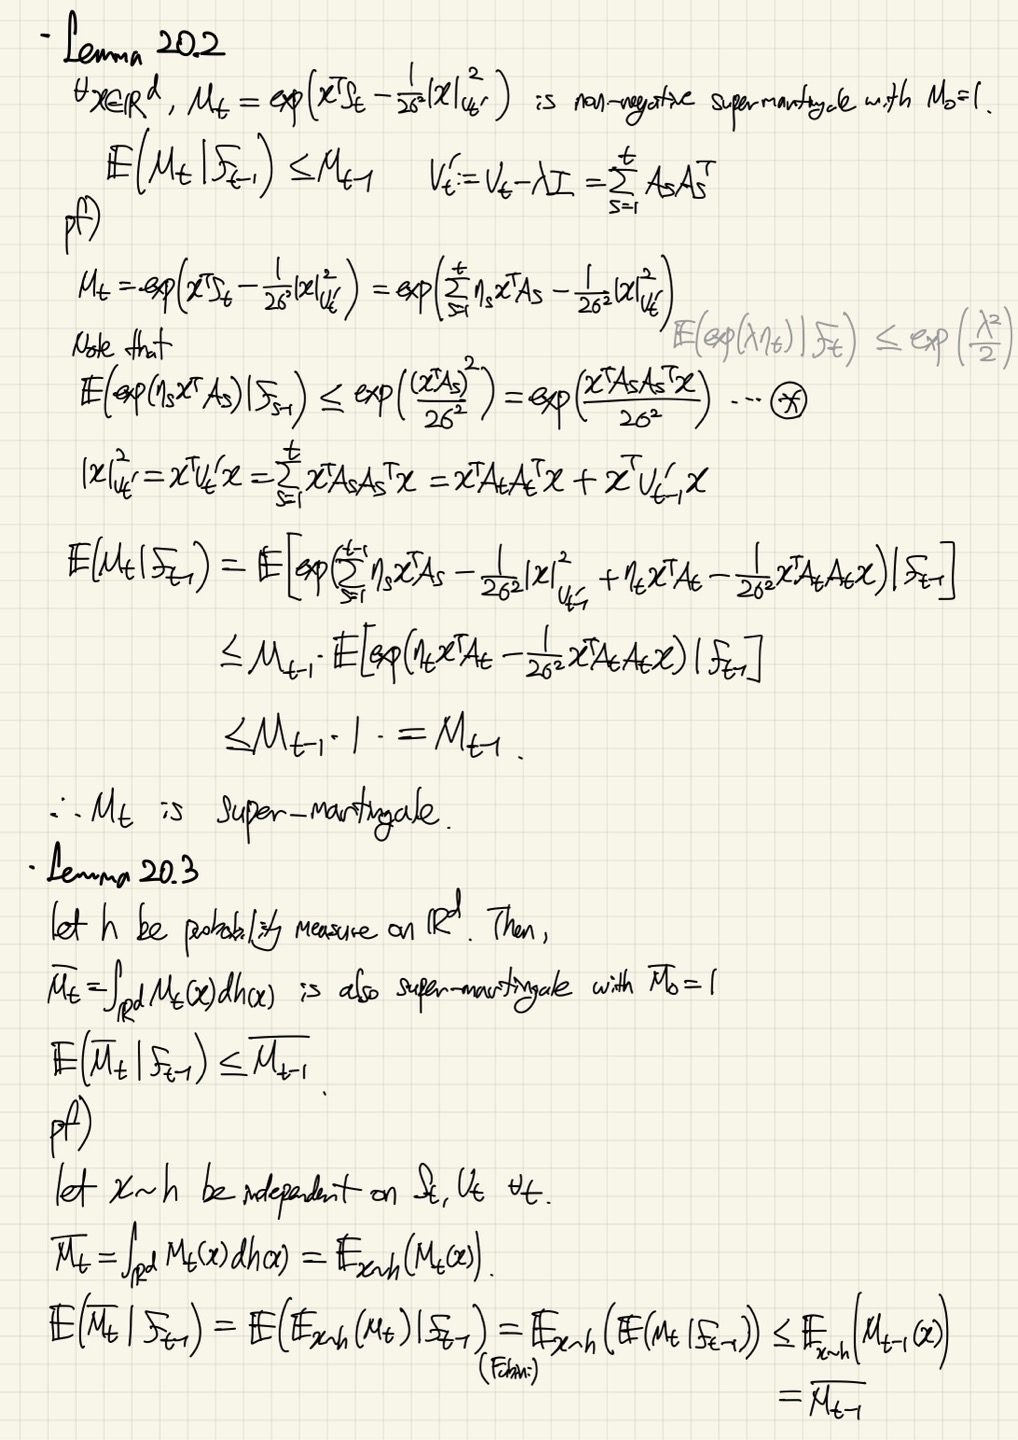 · Lemma 20.2
∀x∈ℝ^d, M_t = exp(x^T S_t − 1/(2σ²) |x|²_{V_t'}) is non-negative supermartingale with M_0=1.
𝔼(M_t | F_{t-1}) ≤ M_{t-1}  V_t' := V_t − λI = Σ_{s=1}^{t} A_s A_s^T
pf)
M_t = exp(x^T S_t − 1/(2σ²) |x|²_{V_t'}) = exp(Σ_{s=1}^{t} η_s x^T A_s − 1/(2σ²) |x|²_{V_t'})
𝔼(exp(λη_t) | F_t) ≤ exp(λ²/2)
Note that
𝔼(exp(η_s x^T A_s) | F_{s-1}) ≤ exp((x^T A_s)²/(2σ²)) = exp(x^T A_s A_s^T x/(2σ²)) ... ⊛
|x|²_{V_t'} = x^T V_t' x = Σ_{s=1}^{t} x^T A_s A_s^T x = x^T A_t A_t^T x + x^T V_{t-1}' x
𝔼(M_t | F_{t-1}) = 𝔼[exp(Σ_{s=1}^{t-1} η_s x^T A_s − 1/(2σ²) |x|²_{V_{t-1}'} + η_t x^T A_t − 1/(2σ²) x^T A_t A_t x) | F_{t-1}]
≤ M_{t-1} · 𝔼[exp(η_t x^T A_t − 1/(2σ²) x^T A_t A_t x) | F_{t-1}]
≤ M_{t-1} · 1 · = M_{t-1}.
∴ M_t is super-martingale.
· Lemma 20.3
let h be probability measure on ℝ^d. Then,
M̄_t = ∫_{ℝ^d} M_t(x) dh(x) is also super-martingale with M̄_0 = 1
𝔼(M̄_t | F_{t-1}) ≤ M̄_{t-1}.
pf)
let x~h be independent on S_t, V_t ∀t.
M̄_t = ∫_{ℝ^d} M_t(x) dh(x) = 𝔼_{x~h}(M_t(x)).
𝔼(M̄_t | F_{t-1}) = 𝔼(𝔼_{x~h}(M_t) | F_{t-1}) = 𝔼_{x~h}(𝔼(M_t | F_{t-1})) ≤ 𝔼_{x~h}(M_{t-1}(x))
(Fubini)
= M̄_{t-1}